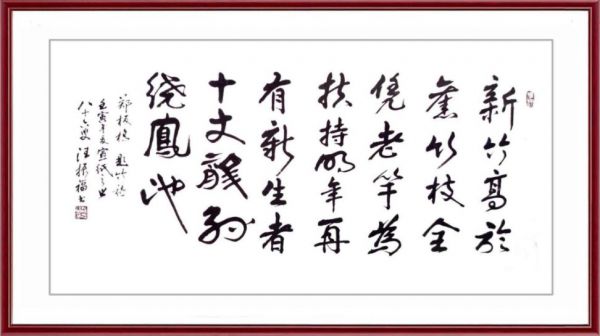 新竹高於
舊竹枝全
凭老竿為
扶持明年再
有新生者
十丈龍孫
繞鳳池
郑板桥 题竹诗
壬寅年夏宣纸之乡
八十六叟 汪振福书